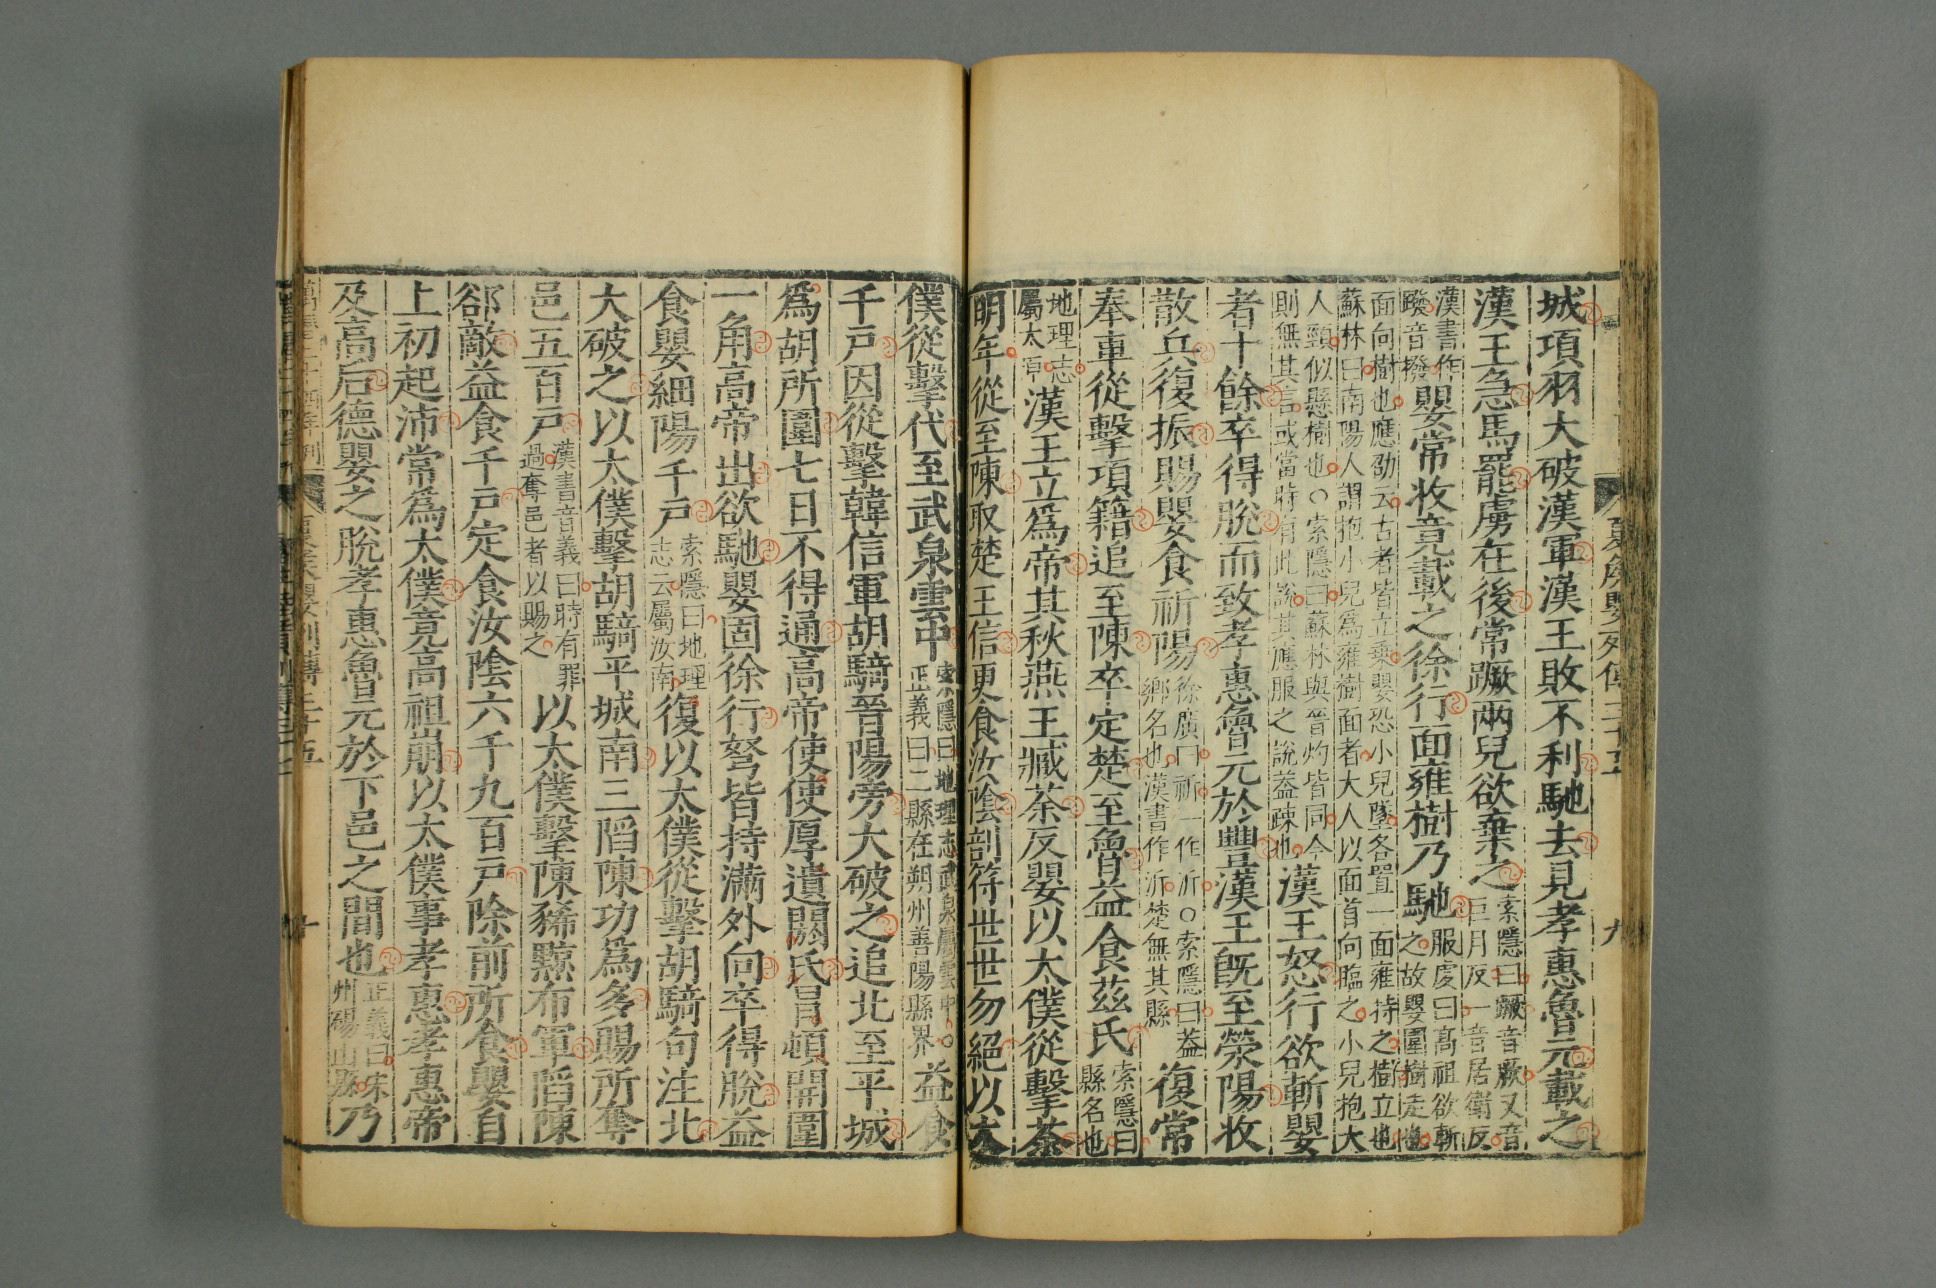 城項羽大破漢軍漢王敗不利馳去見孝惠魯元載之
漢王急馬罷虜在後常蹶兩兒欲棄之
索隱曰蹶音厥又音
巨月反一音居衛反
漢書作
蹳音撥
嬰常收竟載之徐行面雍樹乃馳
服虔曰高祖欲斬
之故嬰圍樹走也
面向樹也應劭云古者皆立乗嬰恐小兒墜各置一面雍持之樹立也
蘇林曰南陽人謂抱小兒爲雍樹面者大人以面首向臨之小兒抱大
人頸似懸樹也○索隱曰蘇林與晉灼皆同今
則無其言或當時有此說其應服之說蓋疎也
漢王怒行欲斬嬰
者十餘卒得脫而致孝惠魯元於豐漢王旣至滎陽收
散兵復振賜嬰食祈陽
徐廣曰祈一作沂○索隱曰蓋
鄉名也漢書作沂楚無其縣
復常
奉車從擊項籍追至陳卒定楚至魯益食茲氏
索隱曰
縣名也
地理志
屬太原
漢王立爲帝其秋燕王臧荼反嬰以太僕從擊荼
明年從至陳取楚王信更食汝陰剖符世世勿絕以太
僕從擊代至武泉雲中
索隱曰地理志武泉屬雲中○
正義曰二縣在朔州善陽縣界
益食
千戶因從擊韓信軍胡騎晉陽旁大破之追北至平城
爲胡所圍七日不得通高帝使使厚遺閼氏冒頓開圍
一角高帝出欲馳嬰固徐行弩皆持滿外向卒得脫益
食嬰細陽千戶
索隱曰地理
志云屬汝南
復以太僕從擊胡騎句注北
大破之以太僕擊胡騎平城南三陷陳功爲多賜所奪
邑五百戶
漢書音義曰時有罪
過奪邑者以賜之
以太僕擊陳豨黥布軍陷陳
郤敵益食千戶定食汝陰六千九百戶除前所食嬰自
上初起沛常爲太僕竟高祖崩以太僕事孝惠孝惠帝
及高后德嬰之脫孝惠魯元於下邑之間也
正義曰宋
州碭山縣
乃